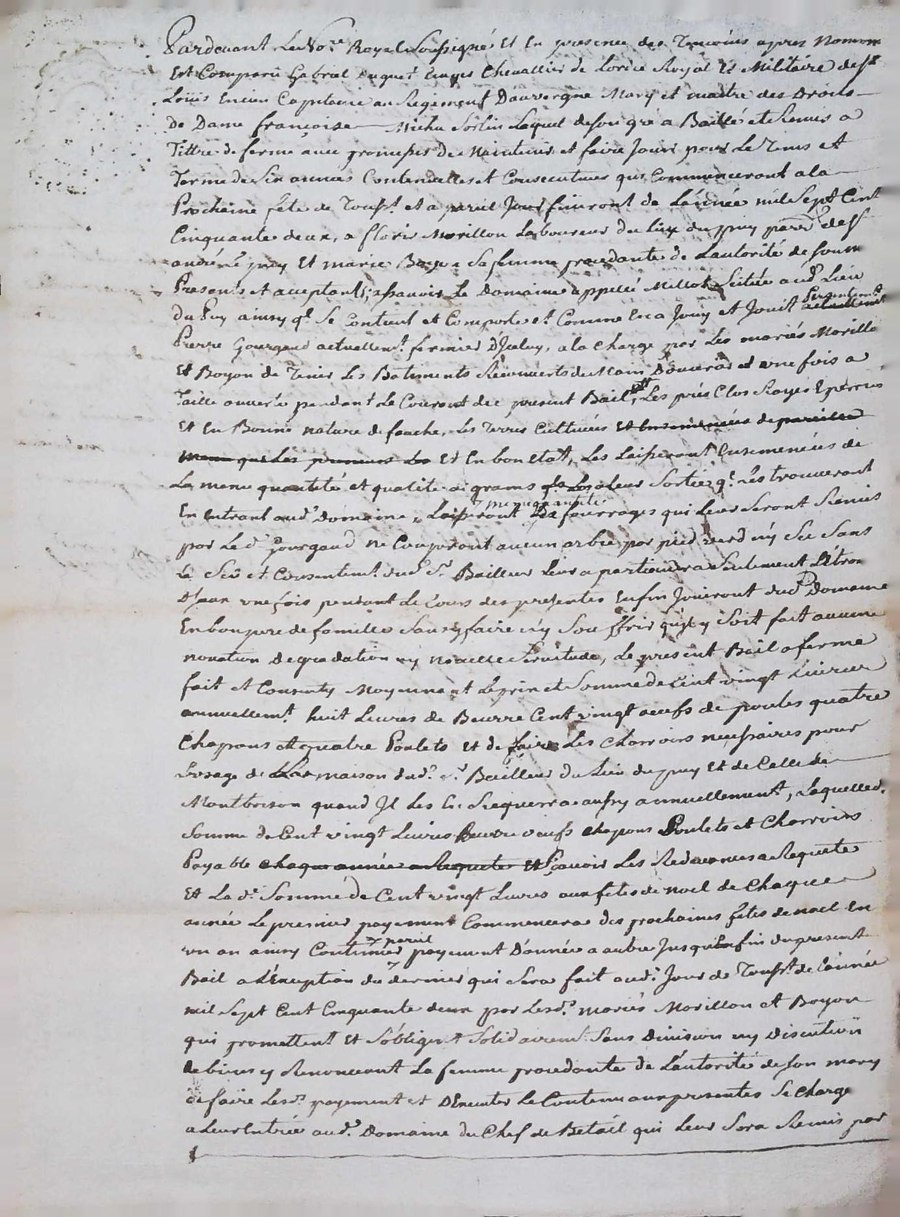 Pardevant Le No.re Royal Soussigné Et En presence des Temoins apres Nommé
Est Comparu Gabriel Chevallier de Lordre Royal Et Militaire de S.t
Loüis Encien Capitaine au Regement Dauvergne Mary et maitre des Droits
de Dame francoise Michu Lequel de Son gré a Baillé et Remis a
Tittre de ferme avec promesses de Maintenir et faire Jouir pour Le Tems et
Terme de Six années Continuelles et Consecutives qui Commenceront a la
Prochaine fête de Touss.t et a pareil Jour finiront de Lannée mil Sept Cent
Cinquante deux, a Morillon Laboureur du Lieu du puy parr.e de S.t
andré Le puy Et marie Boyon Sa femme procedante de Lautorité de Son m.
Presents et acceptants, assavoir Le Domaine appellé Millot Scitée aud. Lieu
du Puy ainsy q.l Se Contient et Comporte et Comme En a Jouy et Jouit presentem.t actuellement
Pierre Gourgaud actuellem.t fermier Diceluy, a la Charge par Les mariés Morillon
Et Boyon de Tenir Les Batiments Recouverts de Main Douvrier et une fois a
Taille ouverte pendant Le Courant du present Bail, Les prés Clos Rayes Eperriés
Et En Bonne nature de fauche, Les Terres Cultivées Et Ensemencées de pareille
meme que Les premiers Les Et En bon Etat, Les Laisseront Ensemencées de
La meme quantité et qualité de grains a Leur Sortie q.l Les trouveront
En entrant aud.t Domaine, Laisseront meme quantité de fourrages qui Leur Seront Remis
par Led. Gourgaud ne Couperont aucun arbre par pied verd ny Sec Sans
Le Sçu et Consentem.t dud. S.r Bailleur Leur apartiendra Seulement
une fois pendant Le Cours des presentes Enfin Jouiront dud.t Domaine
En bon pere de famille Sans y faire ny Souffrir qu'il y Soit fait aucune
novation Degradation ny nouvelle Servitude, Le present Bail a ferme
fait et Consenty Moyennant Le prix et Somme de Cent vingt Livres
annuellem.t huit Livres de Beurre Cent vingt oeufs de poules quatre
Chapons et quatre Poulets Et de faire Les Charrois necessaires pour
Lusage de La maison dud. S.r Bailleur du Lieu du puy Et de Celle de
Montbrison quand Il Les En Requerra aussy annuellement, Laquelle d.
Somme de Cent vingt Livres Beurre oeufs chapons Poulets et Charrois
Payable chaque année a Requete Et Sçavoir Les Redevances a Requete
Et La d.e Somme de Cent vingt Livres aux fêtes de noel de Chaque
année Le premier payement Commencera des prochaines fêtes de noel En
un an ainsy Continuer pareil payement D'année a autre Jusqu'En fin du present
Bail a L'Exception du dernier qui Sera fait aud.t Jour de Touss.t de Lannée
mil Sept Cent Cinquante deux par Lesd.s mariés Morillon et Boyon
qui promettent Et S'obligent Solidairem.t Sans Division ny Discution
de biens y Renonceant La femme procedante de Lautorité de Son mary
de faire Lesd.s payement et D'Executer Le Contenu aux presentes Se Charge
a Leur Entrée aud.t Domaine du Chef de Betail qui Leur Sera Remis par